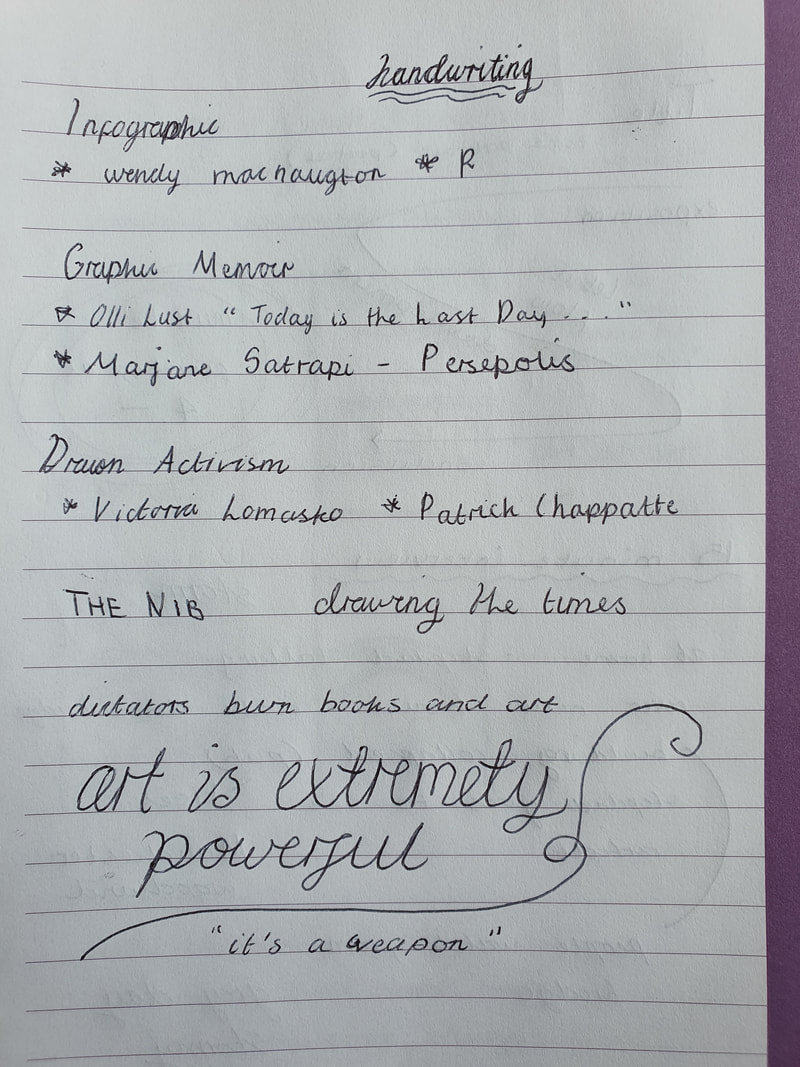 handwriting
Infographic
* wendy macnaugton * R
Graphic Memoir
* Olli Lust " Today is the Last Day . . . "
* Marjane Satrapi - Persepolis
Drawn Activism
* Victoria Lomasko * Patrick Chappatte
THE NIB drawing the times
dictators burn books and art
art is extremely
powerful
"it's a weapon"